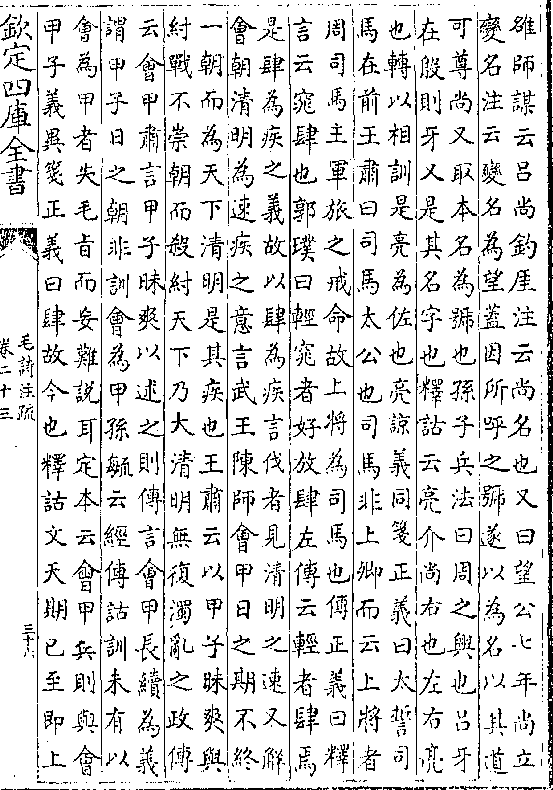 雒師謀云呂尚釣厓注云尚名也又曰望公七年尚立
變名注云變名為望蓋因所呼之號遂以為名以其道
可尊尚又取本名為號也孫子兵法曰周之興也呂牙
在殷則牙又是其名字也釋詁云亮介尚右也左右亮
也轉以相訓是亮為佐也亮諒義同箋正義曰太誓司
馬在前王肅曰司馬太公也司馬非上卿而云上將者
周司馬主軍旅之戒命故上將為司馬也傳正義曰釋
言云窕肆也郭璞曰輕窕者好放肆左傳云輕者肆焉
是肆為疾之義故以肆為疾言伐者見清明之速又解
會朝清明為速疾之意言武王陳師會甲日之期不終
一朝而為天下清明是其疾也王肅云以甲子昧爽與
紂戰不崇朝而殺紂天下乃大清明無復濁亂之政傳
云會甲肅言甲子昧爽以述之則傳言會甲長續為義
謂甲子日之朝非訓會為甲孫毓云經傳詁訓未有以
會為甲者失毛㫖而妄難説耳定本云會甲兵則與會
甲子義異箋正義曰肆故今也釋詁文天期已至即上
欽定四庫全書
毛詩注疏
卷二十三